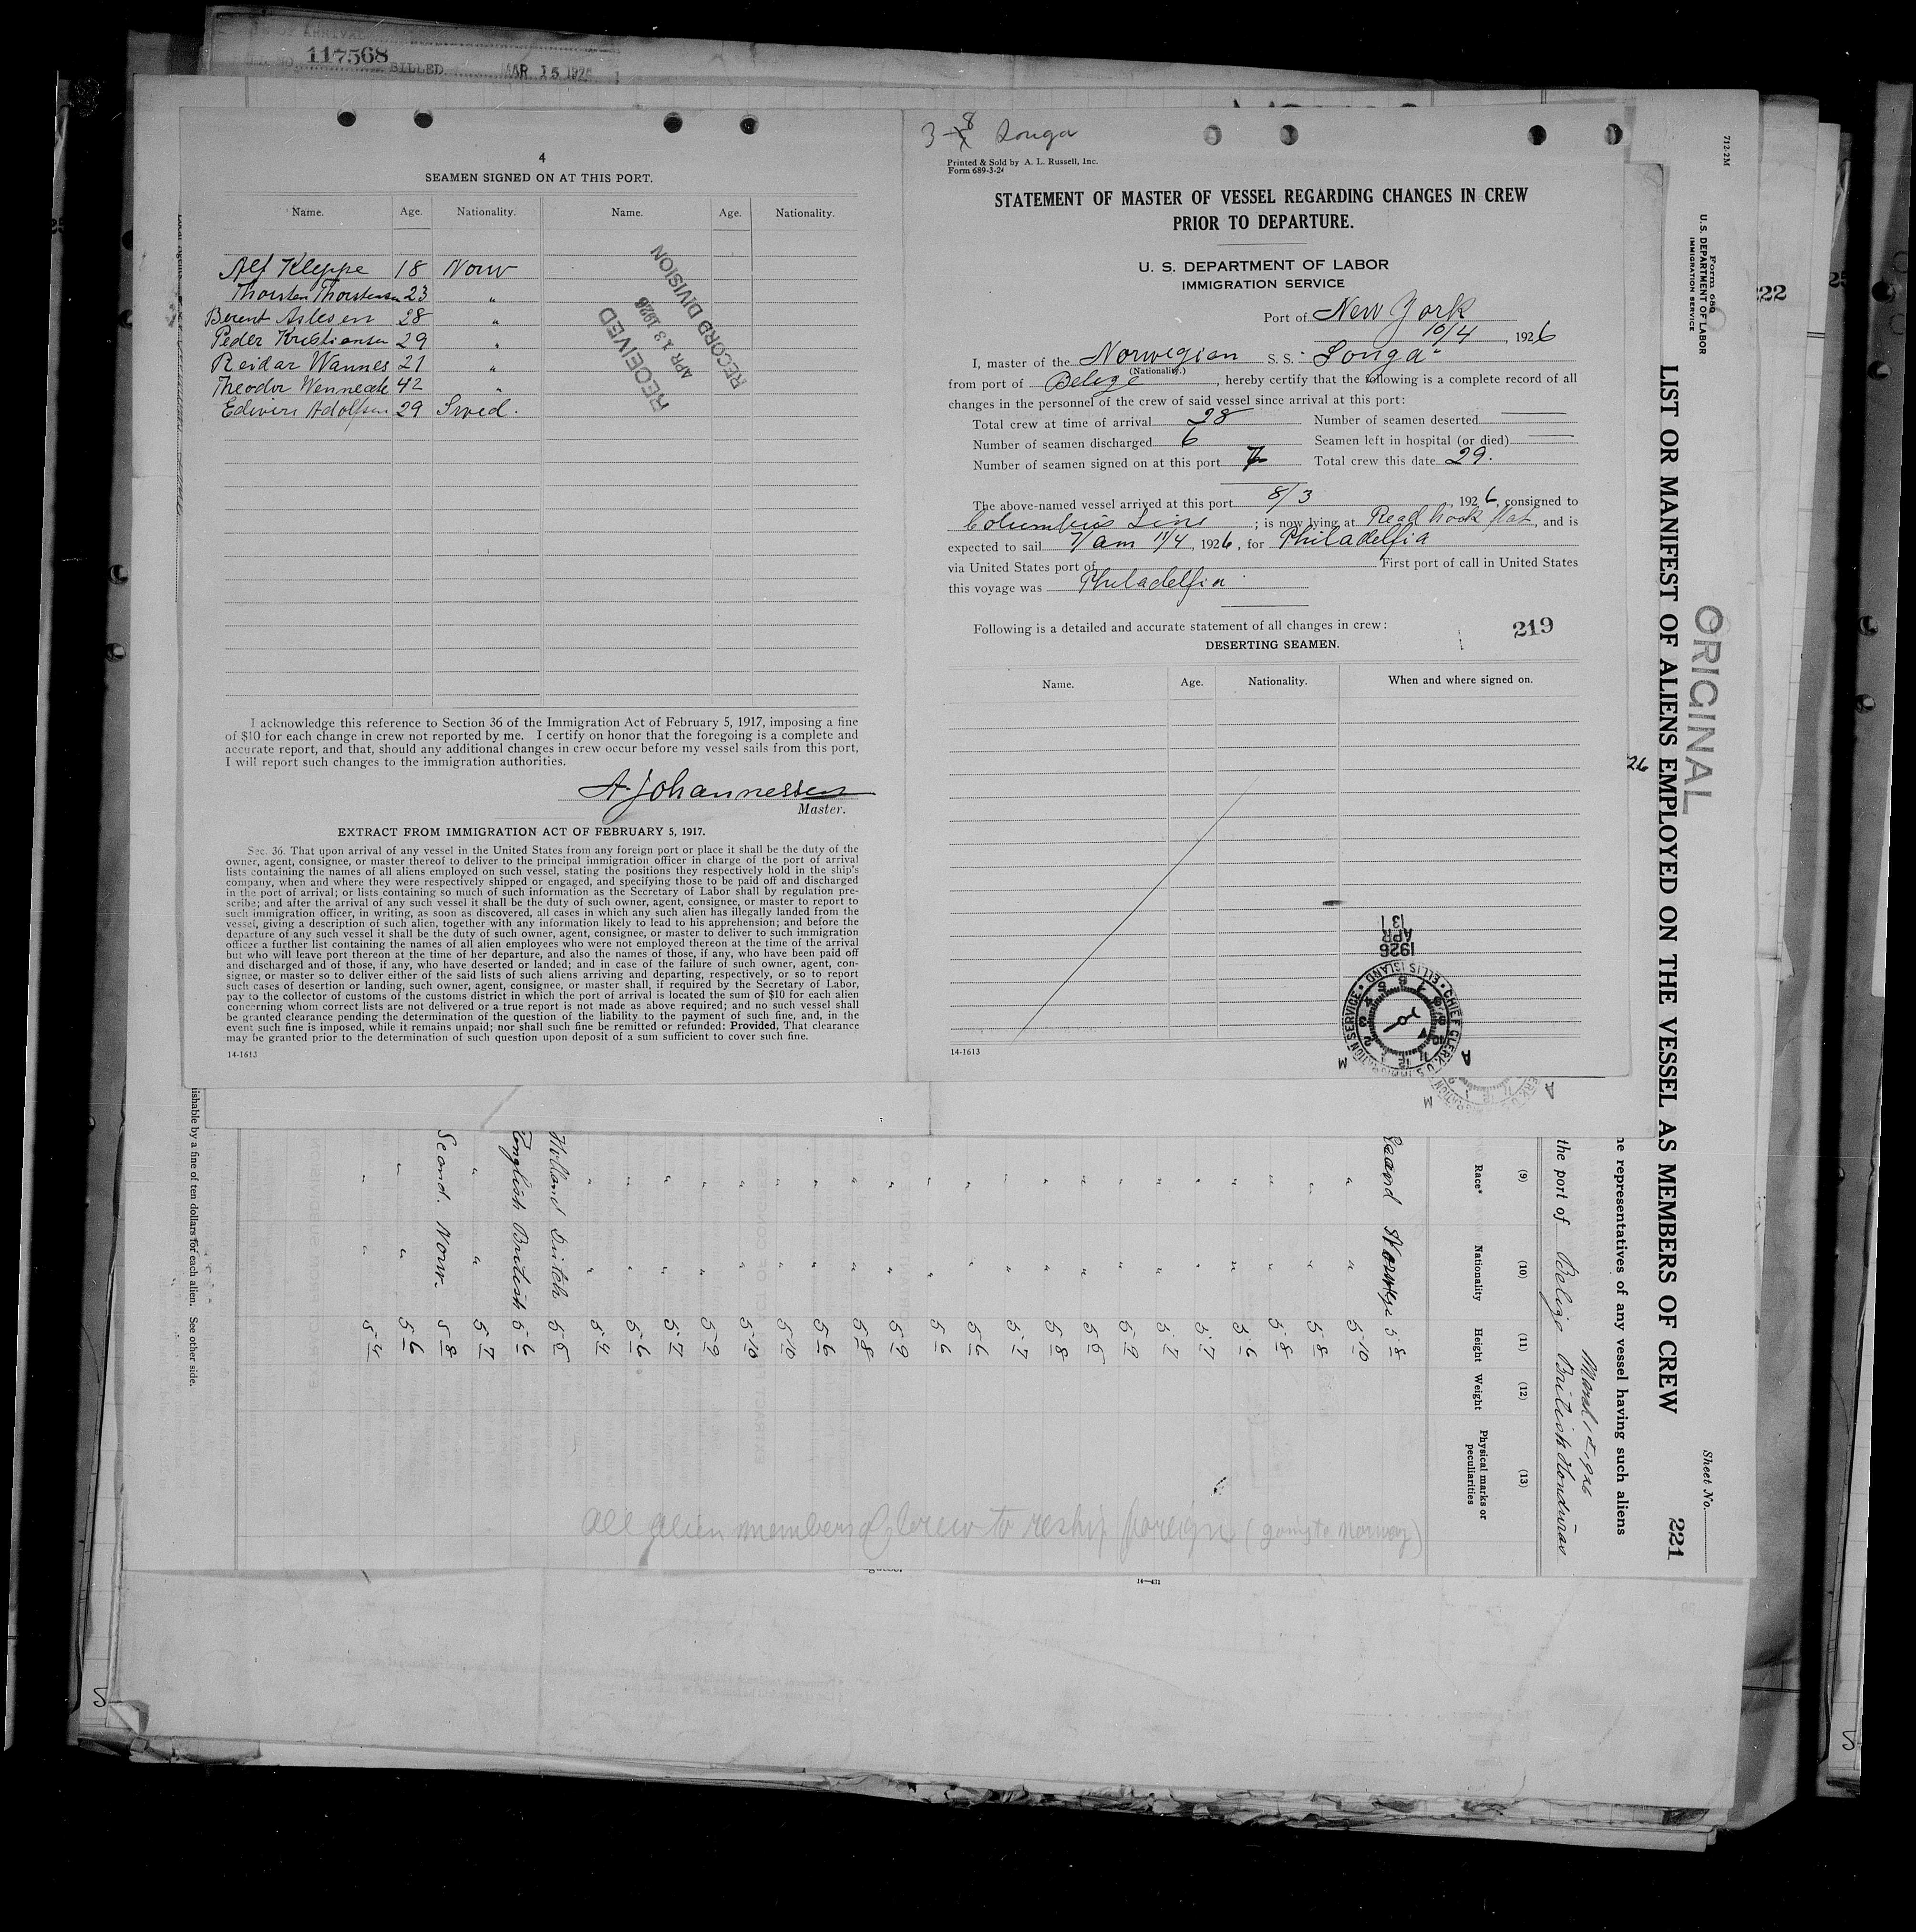 117568
BILLED
MAR 15 1926
4
SEAMEN SIGNED ON AT THIS PORT.
Name. Age. Nationality. Name. Age. Nationality.
Alf Kleppe 18 Norw
Thorsten Thorstensen 23 "
Berent Aslesen 28 "
Peder Kristiansen 29 "
Reidar Wannes 21 "
Theodor 42 "
Adolfsen 29 Swed.
RECEIVED
APR 13 1926
RECORD DIVISION
I acknowledge this reference to Section 36 of the Immigration Act of February 5, 1917, imposing a fine
of $10 for each change in crew not reported by me. I certify on honor that the foregoing is a complete and
accurate report, and that, should any additional changes in crew occur before my vessel sails from this port,
I will report such changes to the immigration authorities.
A. Johannessen
Master.
EXTRACT FROM IMMIGRATION ACT OF FEBRUARY 5, 1917.
Sec. 36. That upon arrival of any vessel in the United States from any foreign port or place it shall be the duty of the
owner, agent, consignee, or master thereof to deliver to the principal immigration officer in charge of the port of arrival
lists containing the names of all aliens employed on such vessel, stating the positions they respectively hold in the ship's
company, when and where they were respectively shipped or engaged, and specifying those to be paid off and discharged
in the port of arrival; or lists containing so much of such information as the Secretary of Labor shall by regulation pre-
scribe; and after the arrival of any such vessel it shall be the duty of such owner, agent, consignee, or master to report to
such immigration officer, in writing, as soon as discovered, all cases in which any such alien has illegally landed from the
vessel, giving a description of such alien, together with any information likely to lead to his apprehension; and before the
departure of any such vessel it shall be the duty of such owner, agent, consignee, or master to deliver to such immigration
officer a further list containing the names of all alien employees who were not employed thereon at the time of the arrival
but who will leave port thereon at the time of her departure, and also the names of those, if any, who have been paid off
and discharged and of those, if any, who have deserted or landed; and in case of the failure of such owner, agent, con-
signee, or master so to deliver either of the said lists of such aliens arriving and departing, respectively, or so to report
such cases of desertion or landing, such owner, agent, consignee, or master shall, if required by the Secretary of Labor,
pay to the collector of customs of the customs district in which the port of arrival is located the sum of $10 for each alien
concerning whom correct lists are not delivered or a true report is not made as above required; and no such vessel shall
be granted clearance pending the determination of the question of the liability to the payment of such fine, and, in the
event such fine is imposed, while it remains unpaid; nor shall such fine be remitted or refunded: Provided, That clearance
may be granted prior to the determination of such question upon deposit of a sum sufficient to cover such fine.
14-1613
3-8 Songa
Printed & Sold by A. L. Russell, Inc.
Form 689-3-24
STATEMENT OF MASTER OF VESSEL REGARDING CHANGES IN CREW
PRIOR TO DEPARTURE.
U. S. DEPARTMENT OF LABOR
IMMIGRATION SERVICE
Port of New York
10/4, 1926
I, master of the Norwegian S. S. "Songa"
(Nationality.)
from port of Belize, hereby certify that the following is a complete record of all
changes in the personnel of the crew of said vessel since arrival at this port:
Total crew at time of arrival 28 Number of seamen deserted
Number of seamen discharged 6 Seamen left in hospital (or died)
Number of seamen signed on at this port 7 Total crew this date 29.
The above-named vessel arrived at this port 8/3, 1926, consigned to
Columbus Line; is now lying at Read hook flat, and is
expected to sail 7/am 11/4, 1926, for Philadelfia
via United States port of First port of call in United States
this voyage was Philadelfia
Following is a detailed and accurate statement of all changes in crew:
219
DESERTING SEAMEN.
Name. Age. Nationality. When and where signed on.
1926
APR
13
CHIEF CLERK U.S. IMMIGRATION SERVICE • ELLIS ISLAND •
A M
14-1613
712-2M
Form 689
U. S. DEPARTMENT OF LABOR
IMMIGRATION SERVICE
ORIGINAL
Sheet No.
221
LIST OR MANIFEST OF ALIENS EMPLOYED ON THE VESSEL AS MEMBERS OF CREW
representatives of any vessel having such aliens
March 1st 1926
the port of Belize British Honduras
(9) (10) (11) (12) (13)
Race* Nationality Height Weight Physical marks or
peculiarities
Scand Norwg. 5-8
" " 5-10
" " 5-8
" " 5-8
" " 5-6
" " 5-7
" " 5-7
" " 5-9
" " 5-6
" " 5-8
" " 5-7
" " 5-6
" " 5-6
" " 5-9
" " 5-8
" " 5-6
" " 5-10
" " 5-10
" " 5-9
" " 5-7
" " 5-6
" " 5-4
Holland Dutch 5-5
English British 5-6
" " 5-7
Scand. Norw. 5-8
" " 5-6
" " 5-4
All alien members of crew to reship foreign (going to Norway)
ishable by a fine of ten dollars for each alien. See other side.
222